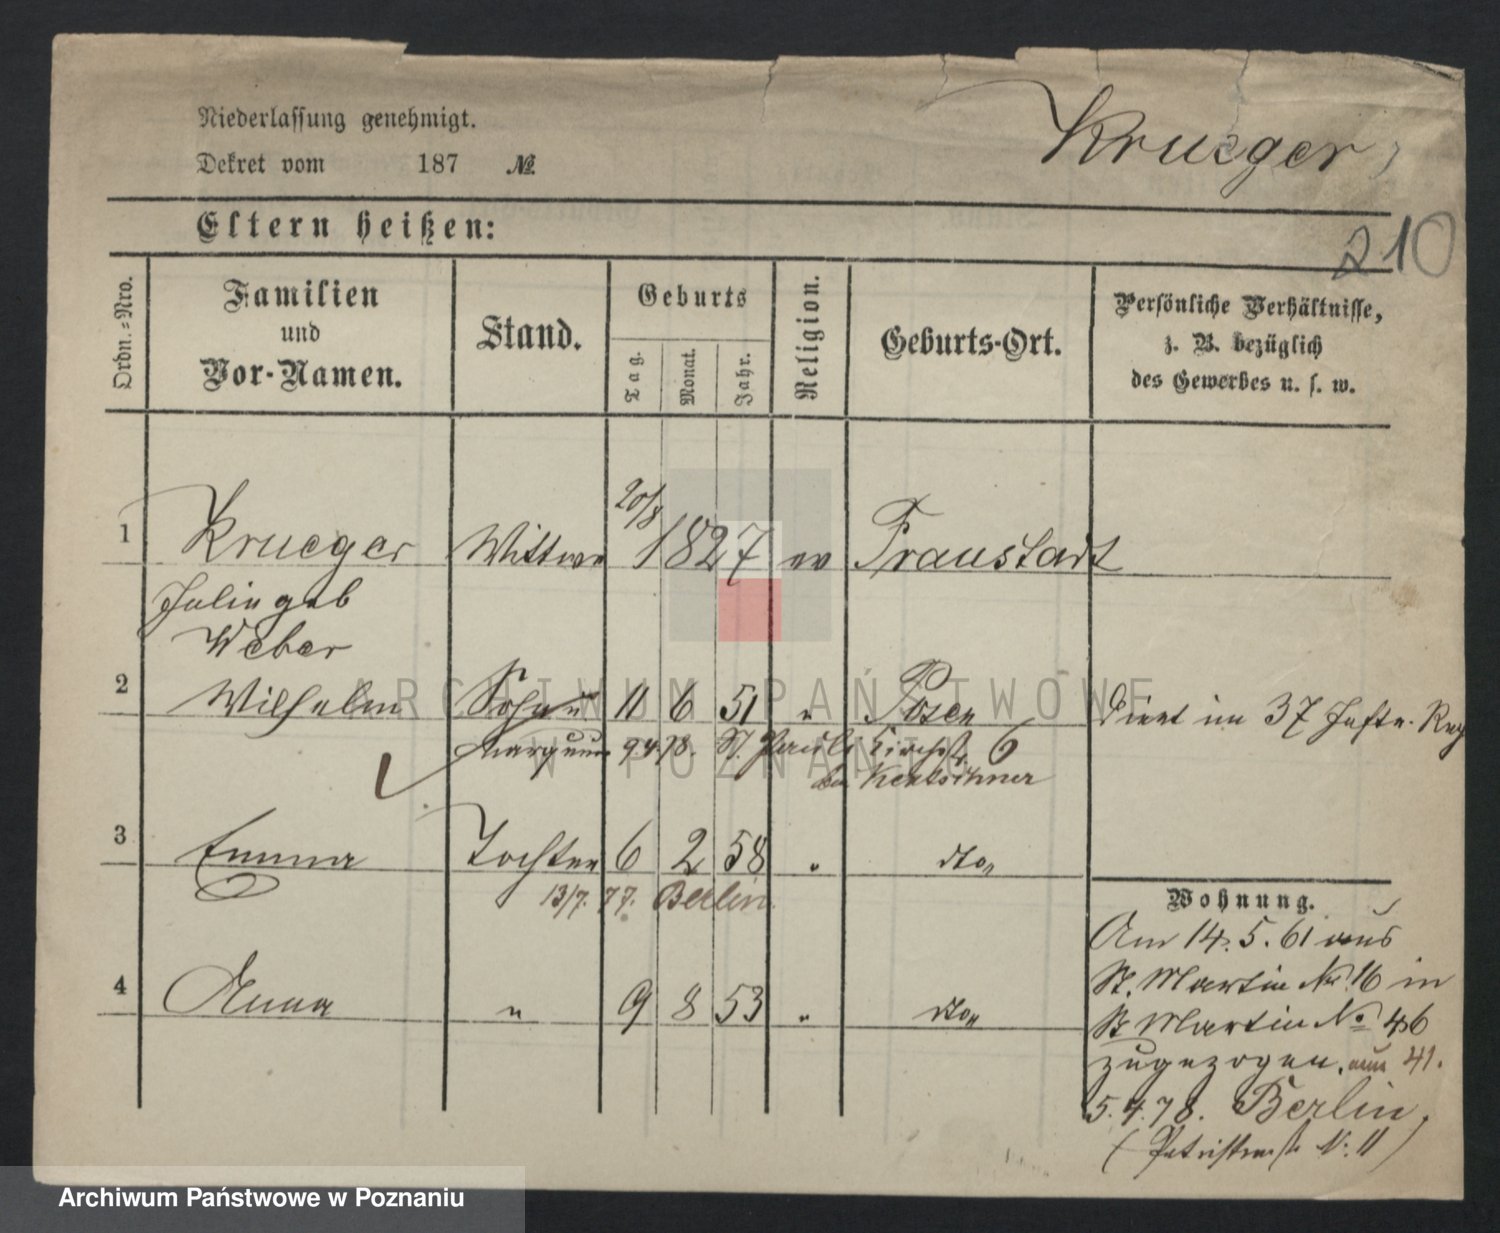 Niederlassung genehmigt.
Dekret vom 187 №
Krueger,
Eltern heißen:
210
Ordn.=Nro.
Familien und Vor-Namen.
Stand.
Geburts
Tag.
Monat.
Jahr.
Religion.
Geburts-Ort.
Persönliche Verhältnisse,
z. B. bezüglich
des Gewerbes u. s. w.
20/8
1 Krueger Wittwe 1827 ev Fraustadt
Julie geb
Weber
2 Wilhelm Sohn 11 6 51 " Posen dient im 37 Inftr. Reg
9 4 78. St. Pauli Kirchst. 6
3 Emma Tochter 6 2 58 " dto
13/7. 77. Berlin
4 Anna " 9 8 53 " dto
Wohnung.
Am 14. 5. 61 aus
St. Martin No 16 in
St Martin No 46
zugezogen. nun 41.
5. 4. 78. Berlin.
ARCHIWUM PAŃSTWOWE
W POZNANIU
Archiwum Państwowe w Poznaniu